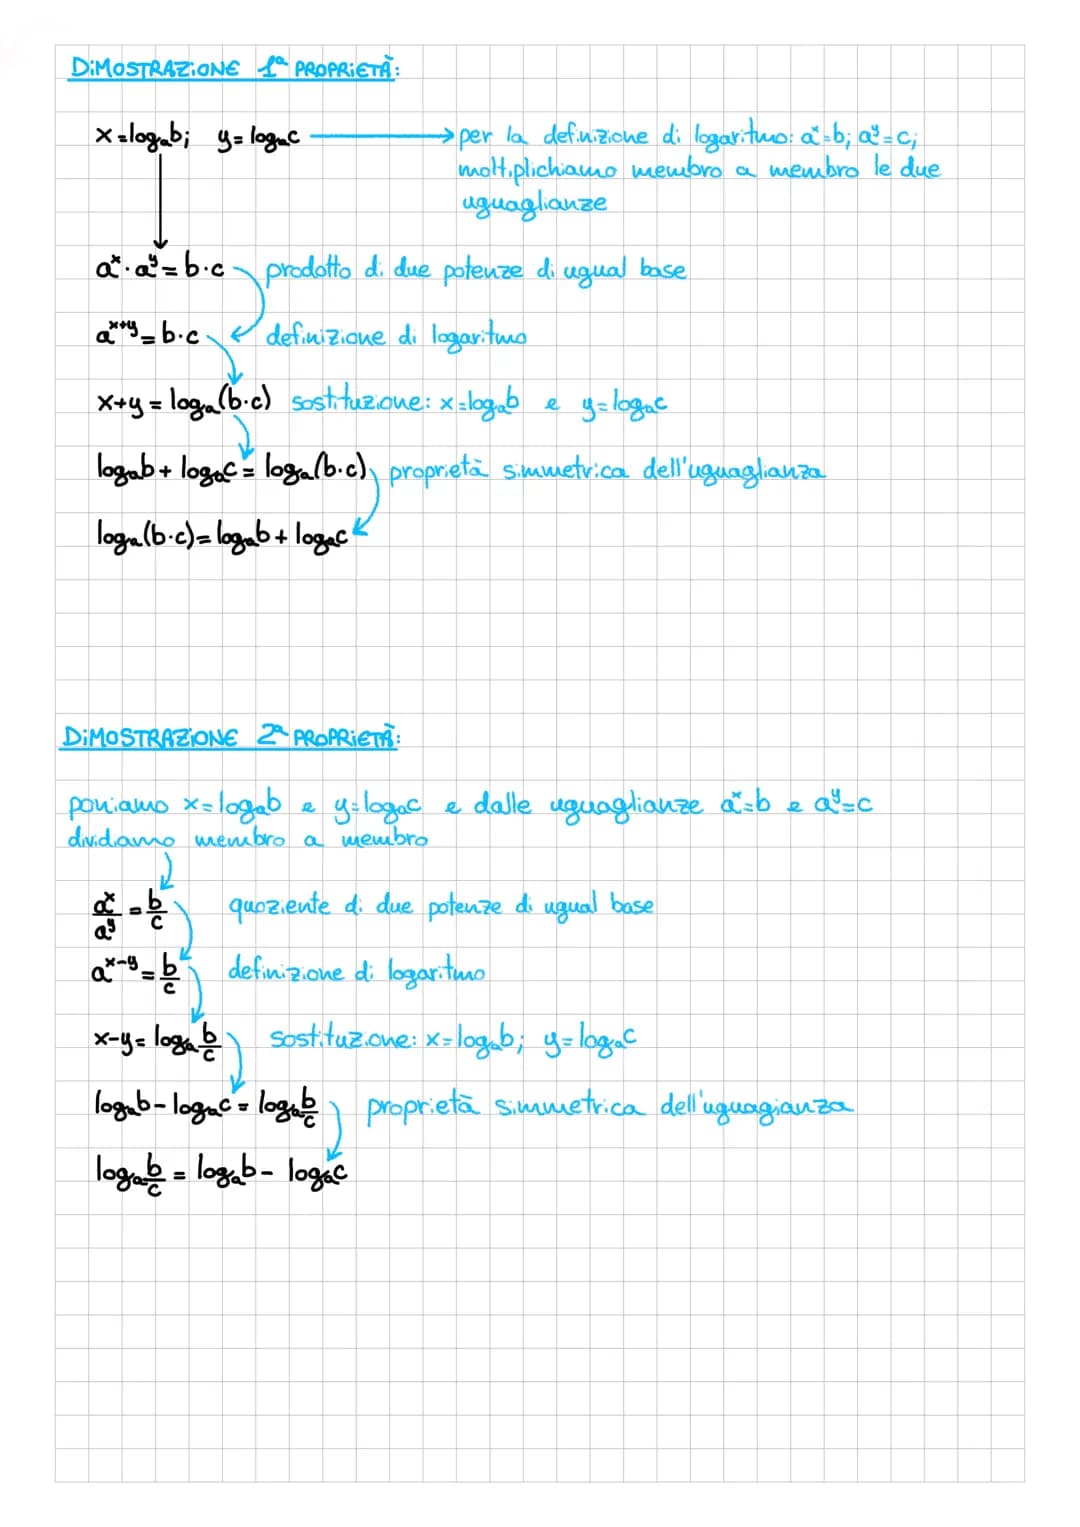 DIMOSTRAZIONE 1ª PROPRIETÀ:
x=logₐb; y=logₐc → per la definizione di logaritmo: aˣ=b; aʸ=c;
moltiplichiamo membro a membro le due
uguaglianze
aˣ·aʸ=b·c prodotto di due potenze di ugual base
aˣ⁺ʸ=b·c definizione di logaritmo
x+y=logₐ(b·c) sostituzione: x=logₐb e y=logₐc
logₐb+logₐc=logₐ(b·c) proprietà simmetrica dell'uguaglianza
logₐ(b·c)=logₐb+logₐc
DIMOSTRAZIONE 2ª PROPRIETÀ:
poniamo x=logₐb e y=logₐc e dalle uguaglianze aˣ=b e aʸ=c
dividiamo membro a membro
aˣ/aʸ=b/c quoziente di due potenze di ugual base
aˣ⁻ʸ=b/c definizione di logaritmo
x-y=logₐb/c sostituzione: x=logₐb; y=logₐc
logₐb-logₐc=logₐb/c proprietà simmetrica dell'uguagianza
logₐb/c=logₐb-logₐc